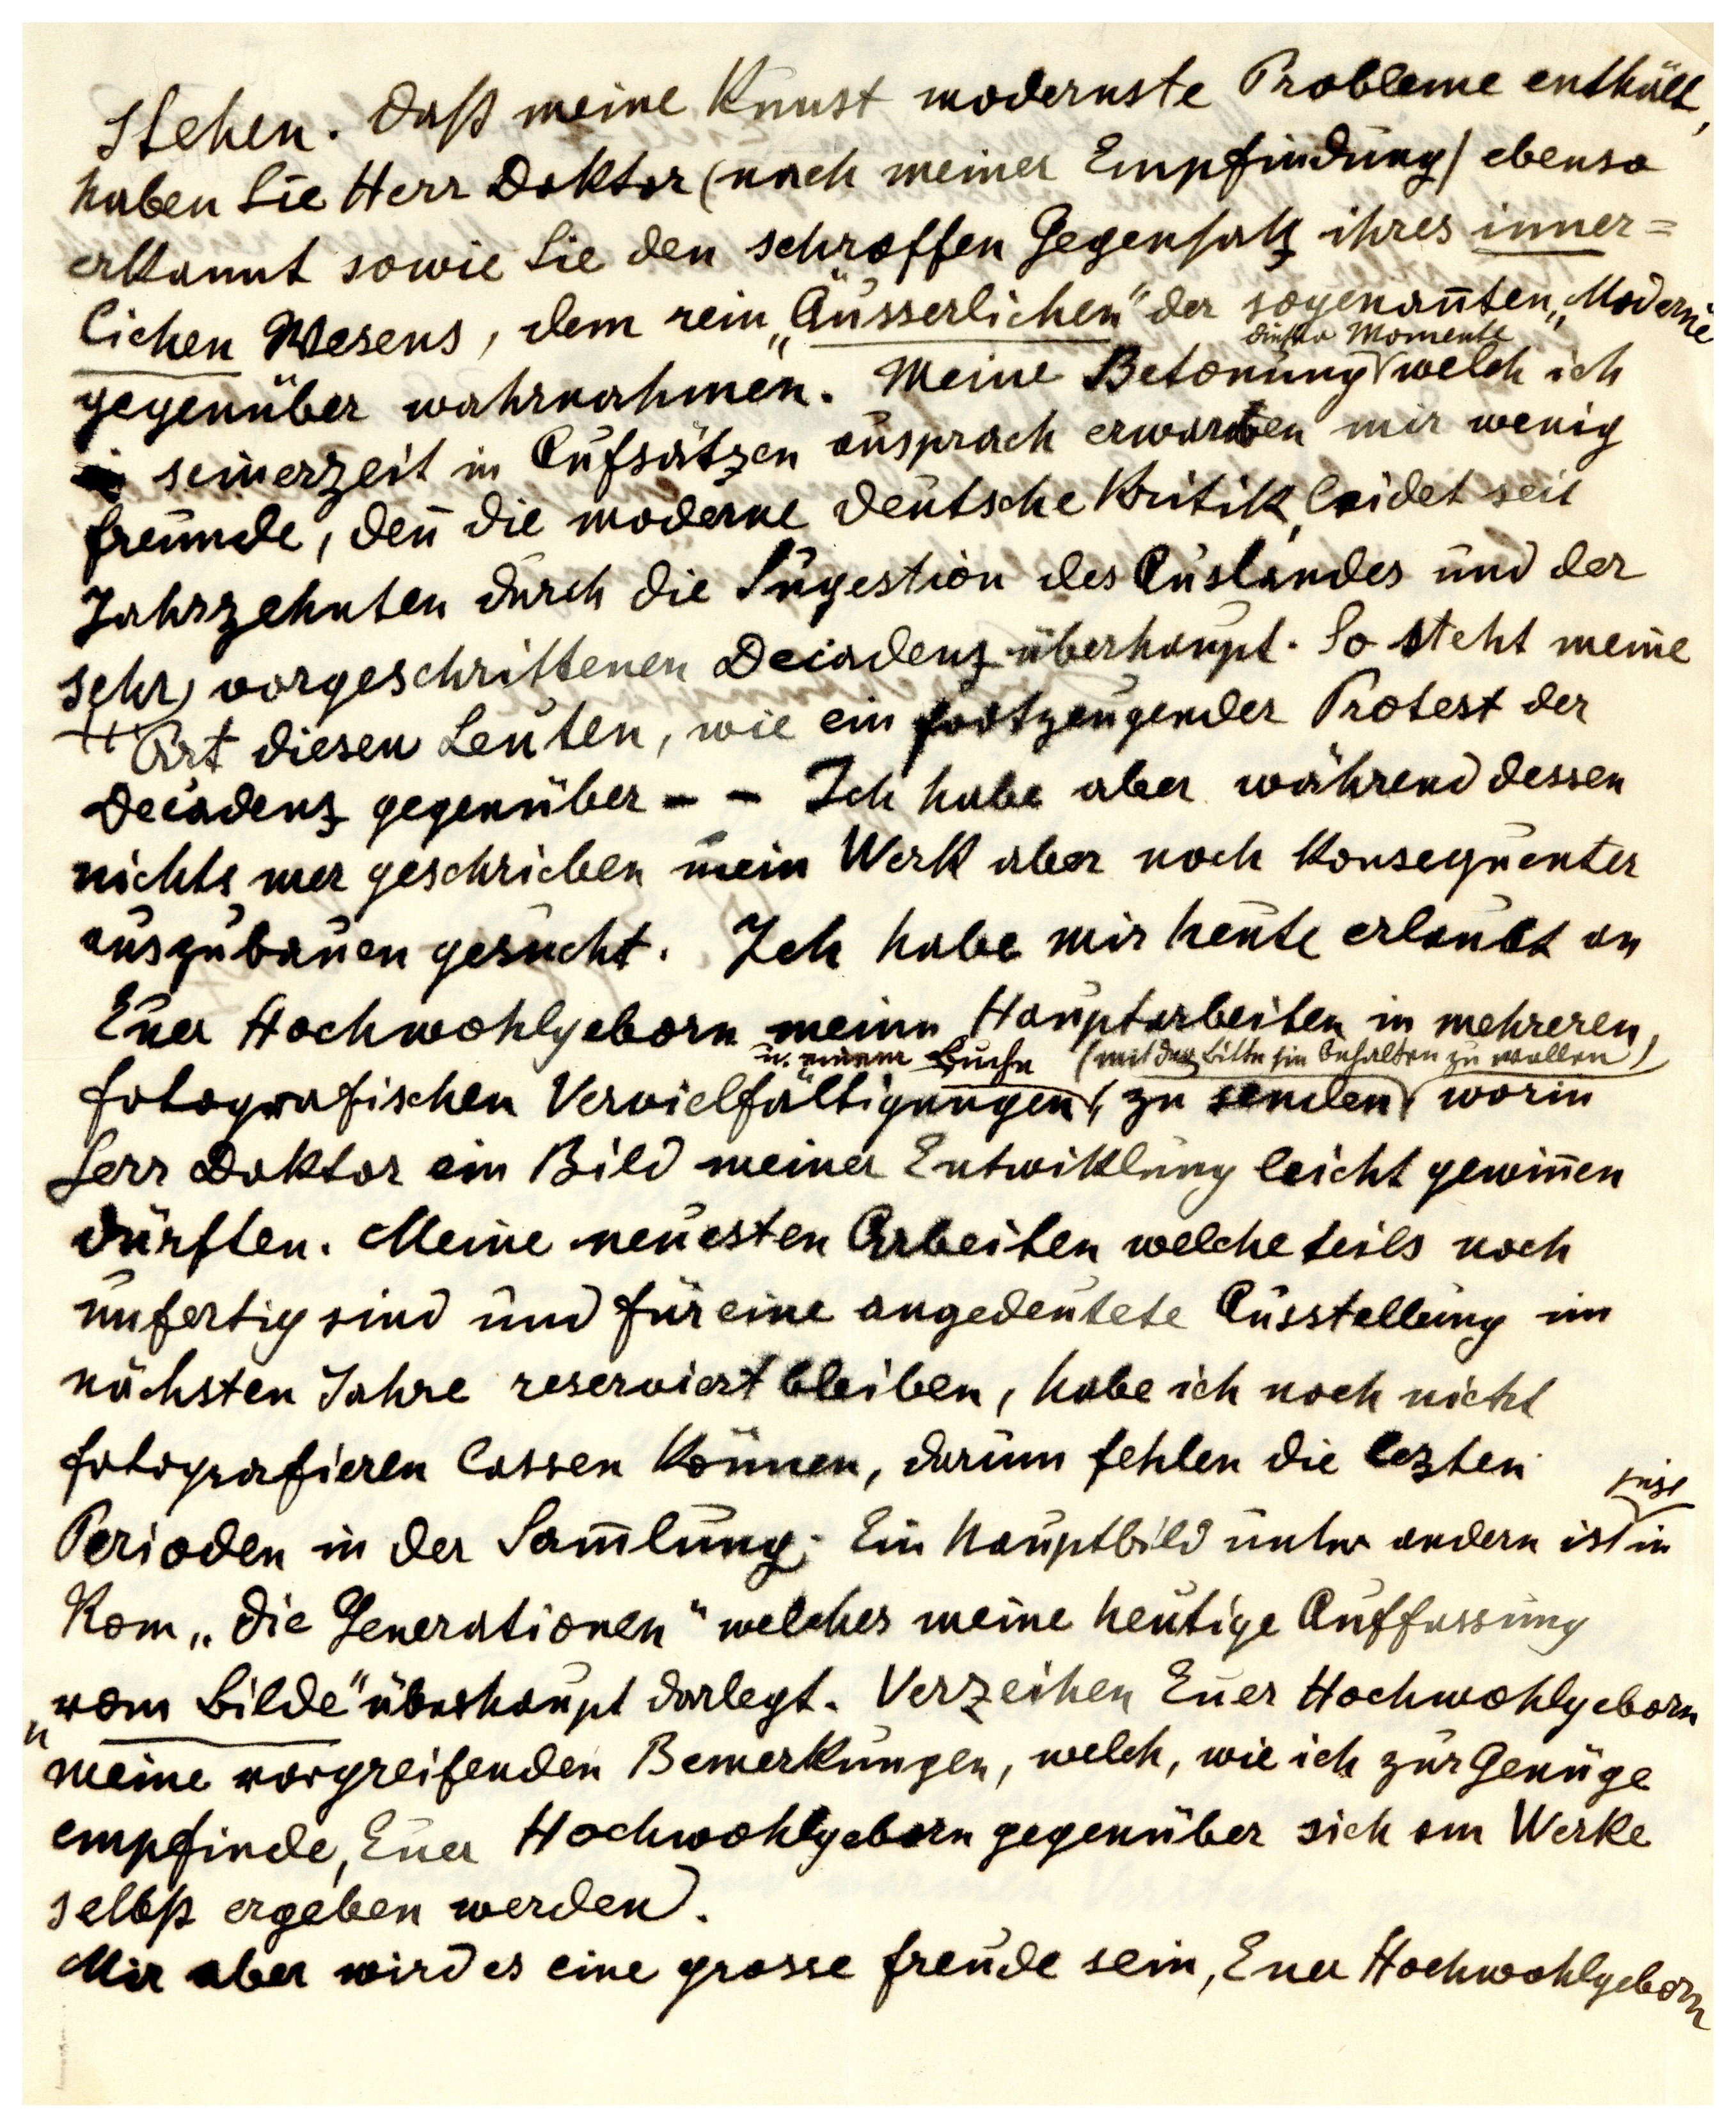 stehen. Daß meine Kunst modernste Probleme enthält,
haben Sie Herr Doktor (nach meiner Empfindung) ebenso
erkannt sowie Sie den schroffen Gegensatz ihres inner=
lichen Wesens, dem rein „Äusserlichen" der sogenan̄ten „Moderne
dieser Momente
gegenüber wahrnahmen. Meine Betonung welch ich
seinerzeit in Aufsätzen aussprach erwarben mir wenig
freunde, den̄ die moderne deutsche Kritik, leidet seit
Jahrzehnten durch die Sugestion des Auslandes und der
sehr vorgeschrittenen Decadenz überhaupt. So steht meine
Art diesen Leuten, wie ein fortzeugender Protest der
Decadenz gegenüber - - Ich habe aber während dessen
nichts mer geschrieben mein Werk aber noch konsequenter
auszubauen gesucht. Ich habe mir heute erlaubt an
Euer Hochwohlgeborn meine Hauptarbeiten in mehreren,
u. einem Buche (mit der Bitte sie behalten zu wollen)
fotografischen Vervielfältigungen, zu senden worin
Herr Doktor ein Bild meiner Entwiklung leicht gewin̄en
dürften. Meine neuesten Arbeiten welche teils noch
unfertig sind und für eine angedeutete Ausstellung im
nächsten Jahre reserviert bleiben, habe ich noch nicht
fotografieren lassen können, darum fehlen die lezten
jezt
Perioden in der Sam̄lung. Ein Hauptbild unter andern ist in
Rom „Die Generationen" welches meine heutige Auffassung
„vom Bilde" überhaupt darlegt. Verzeihen Euer Hochwohlgeborn
meine vorgreifenden Bemerkungen, welch, wie ich zur Genüge
empfinde, Euer Hochwohlgeborn gegenüber sich am Werke
selbst ergeben werden.
Mir aber wird es eine grosse freude sein, Euer Hochwohlgeborn